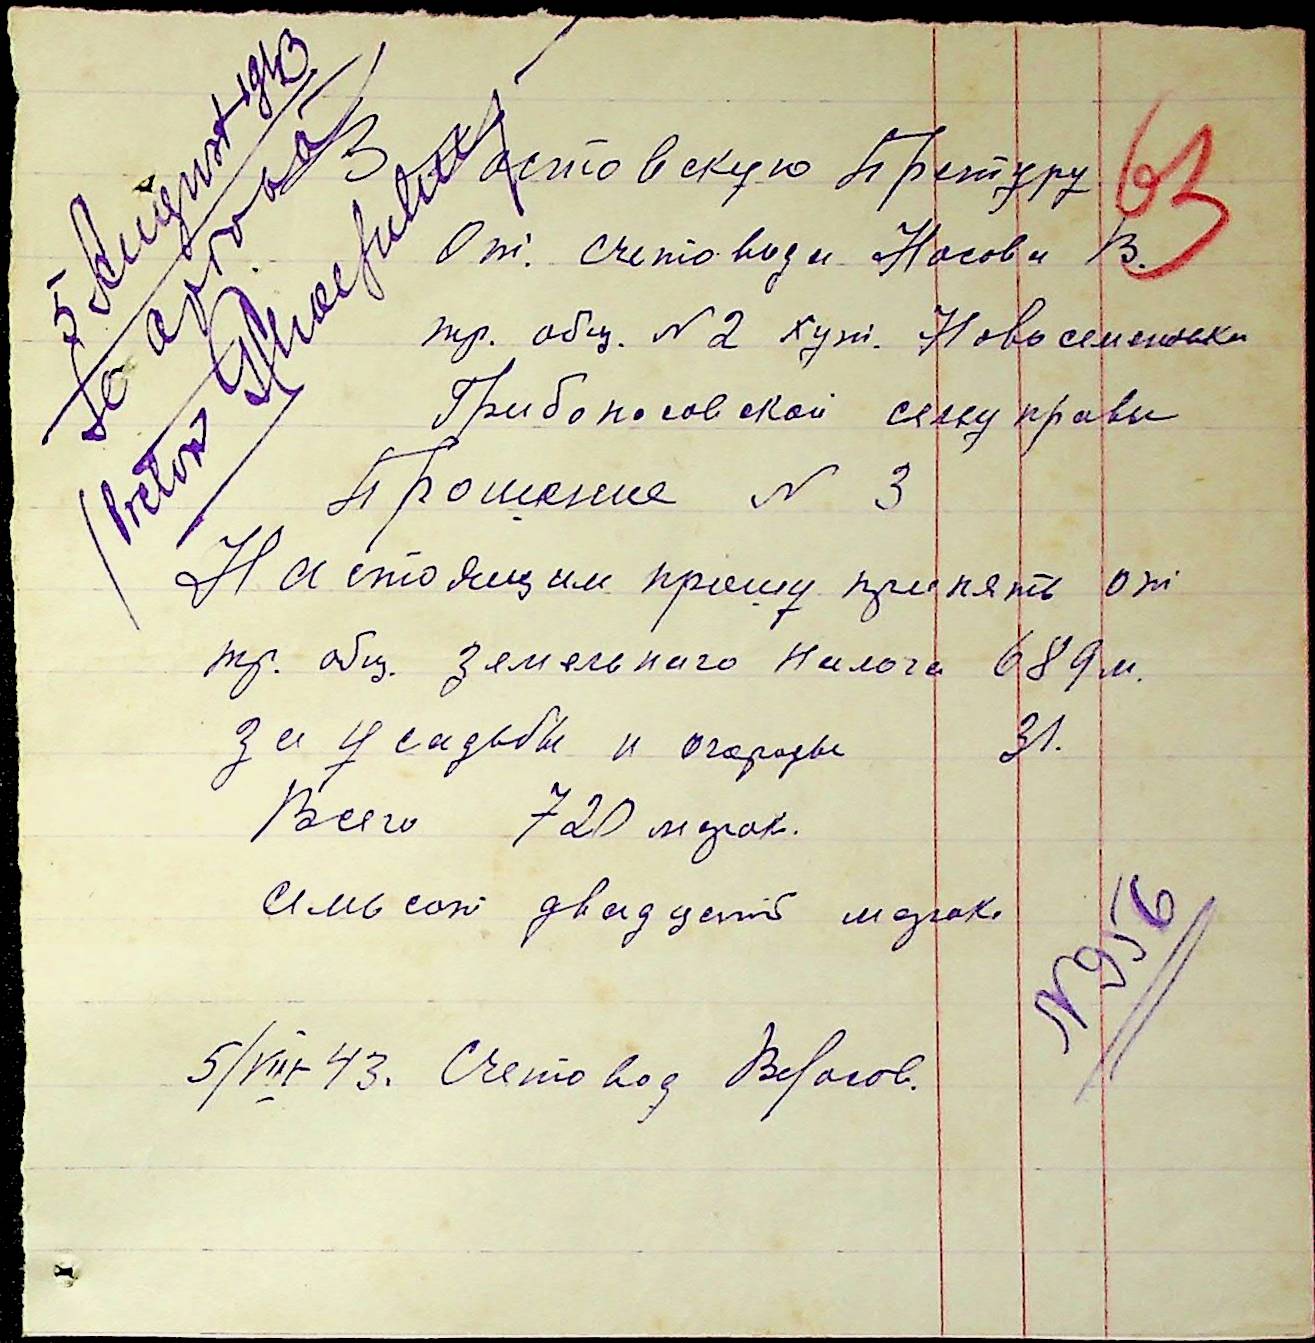 5 August 1943
Se aprobă
Pretor
63
В остовскую Претуру
От. счетовода Носова В.
тр. общ. N 2 хут. Новосеменовка
Грибоносовской сельуправы
Прошение N 3
Настоящим прошу принять от
тр. общ. земельного налога 689 м.
за усадьбы и огороды 31.
Всего 720 марок.
семьсот двадцать марок
N 956
5/VIII-43. Счетовод ВНосов.